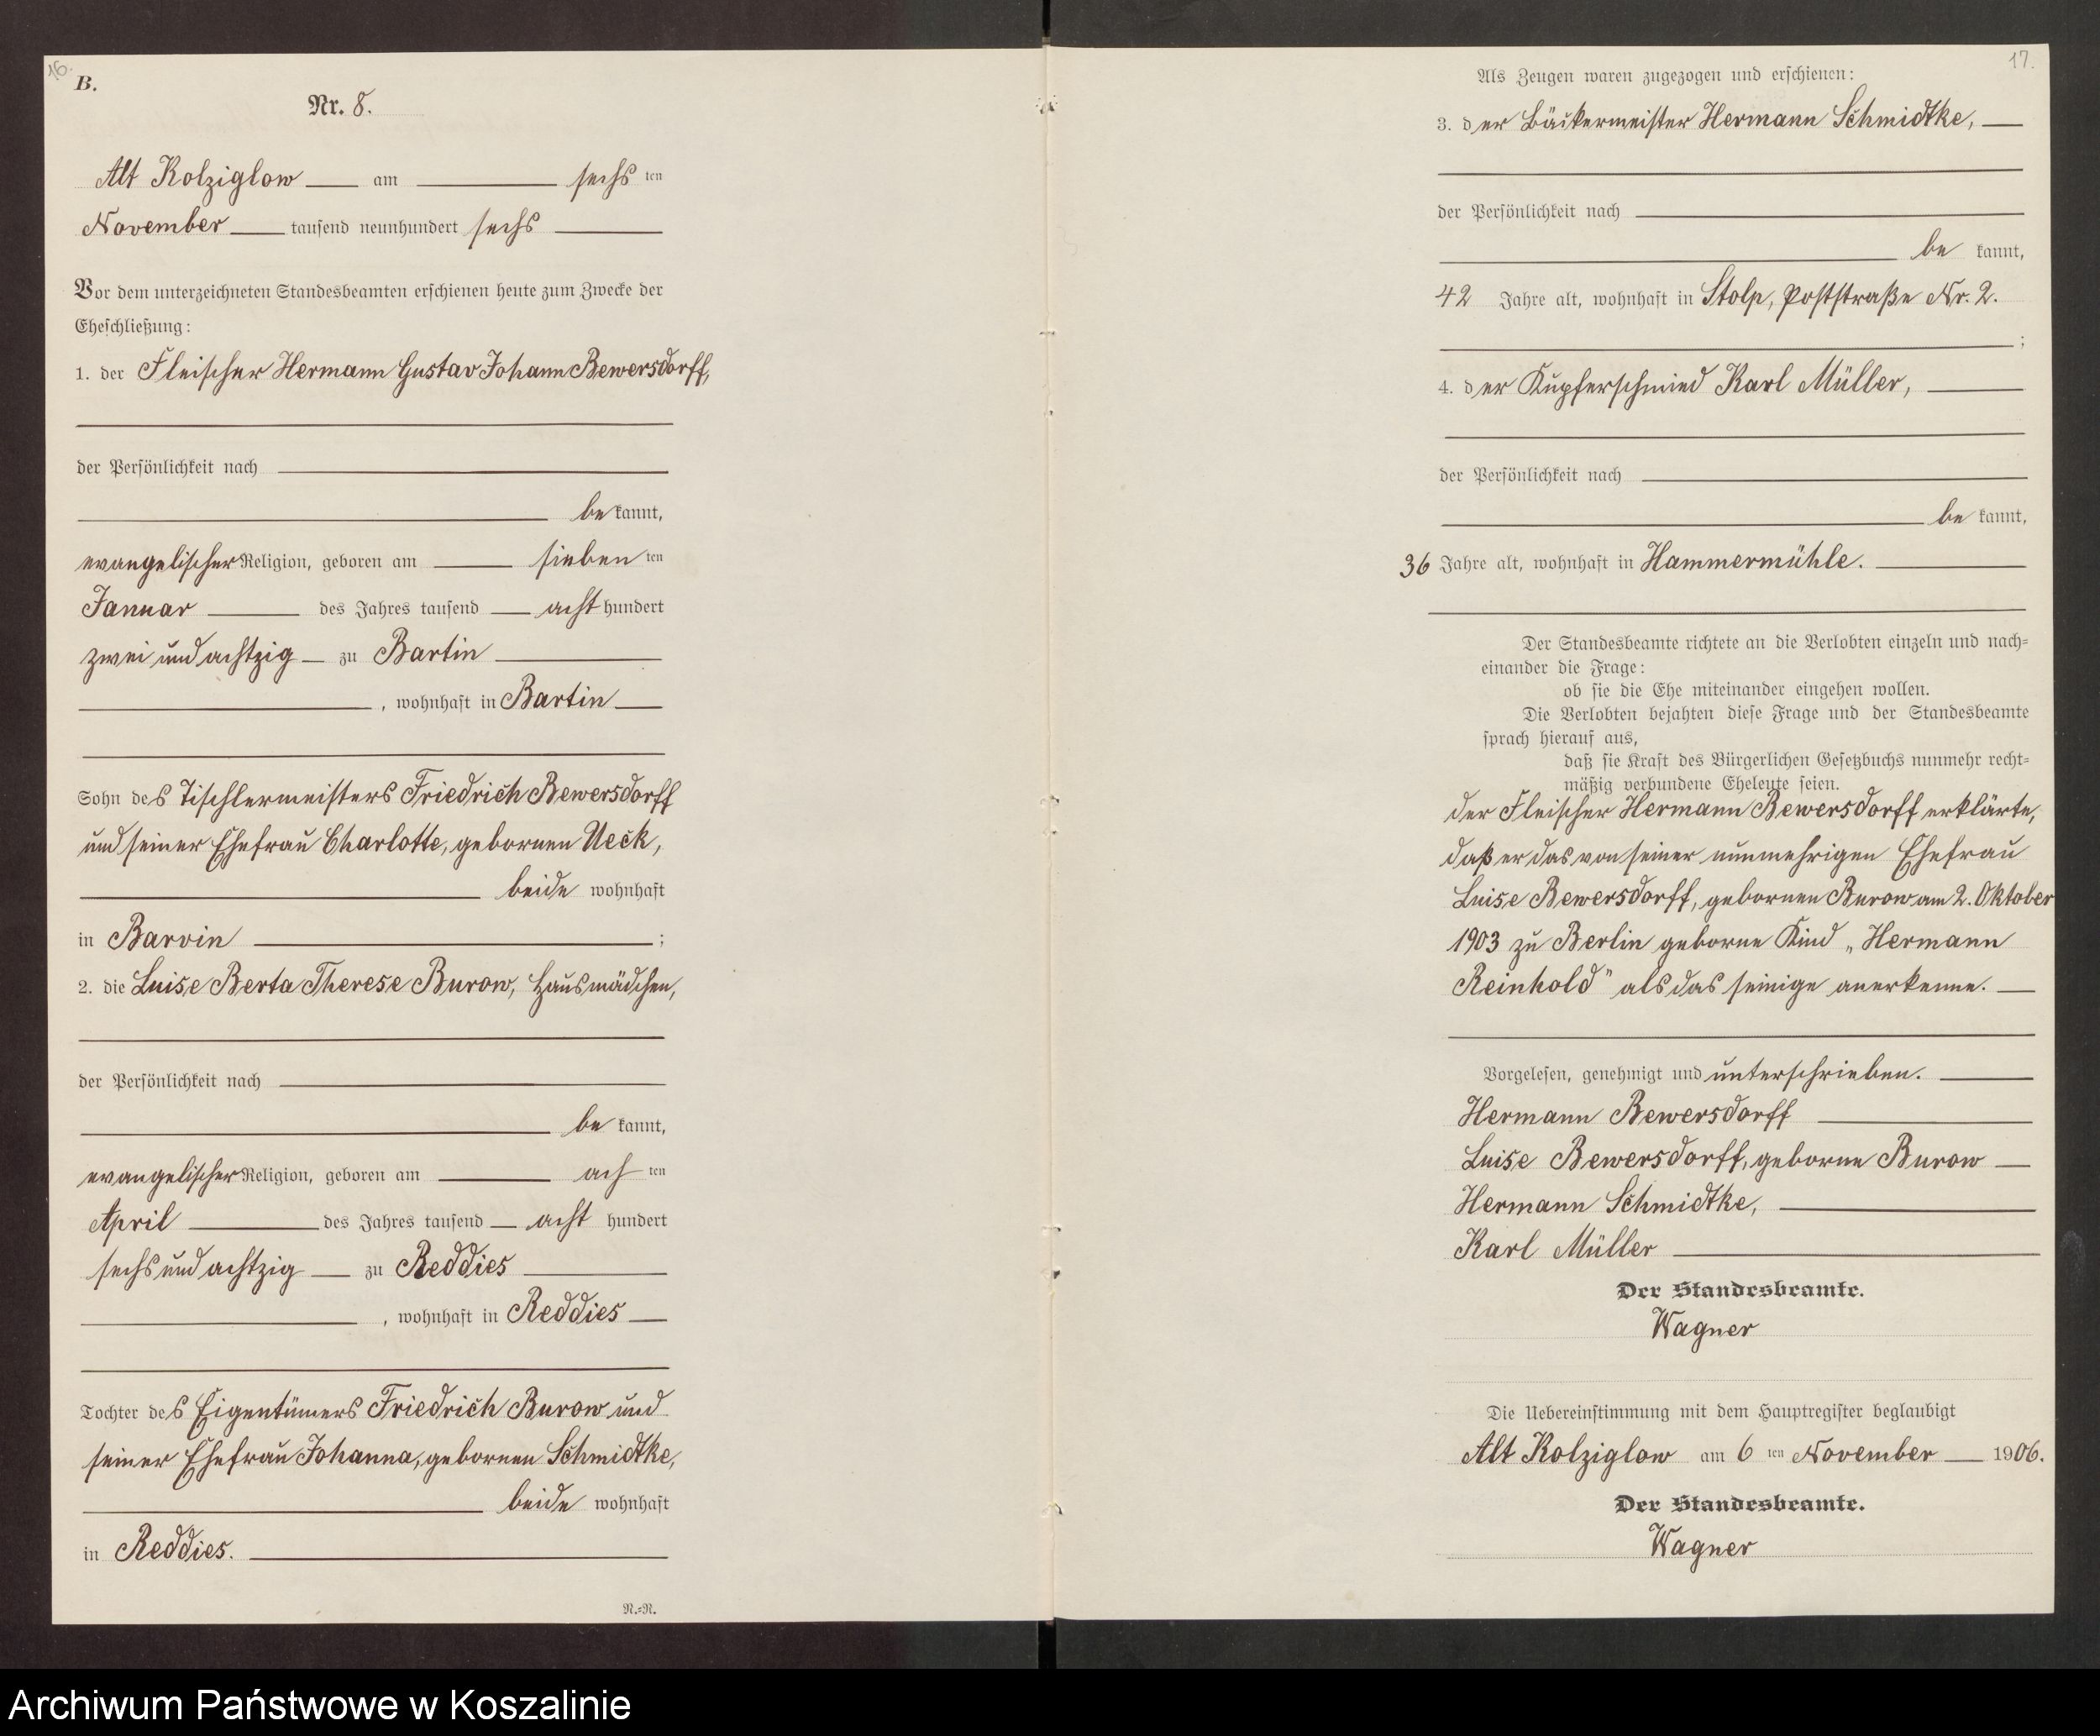 16.
B.
Nr. 8.
Alt Kolziglow am sechs ten
November tausend neunhundert sechs
Vor dem unterzeichneten Standesbeamten erschienen heute zum Zwecke der
Eheschließung:
1. der Fleischer Hermann Gustav Johann Bewersdorff,
der Persönlichkeit nach
be kannt,
evangelischer Religion, geboren am sieben ten
Januar des Jahres tausend acht hundert
zwei und achtzig zu Bartin
, wohnhaft in Bartin
Sohn des Tischlermeisters Friedrich Bewersdorff
und seiner Ehefrau Charlotte, gebornen Ueck,
beide wohnhaft
in Barvin ;
2. die Luise Berta Therese Burow, Hausmädchen,
der Persönlichkeit nach
be kannt,
evangelischer Religion, geboren am ach ten
April des Jahres tausend acht hundert
sechs und achtzig zu Reddies
, wohnhaft in Reddies
Tochter des Eigentümers Friedrich Burow und
seiner Ehefrau Johanna, gebornen Schmidtke,
beide wohnhaft
in Reddies.
N.=N.
17.
Als Zeugen waren zugezogen und erschienen:
3. der Bäckermeister Hermann Schmidtke,
der Persönlichkeit nach
be kannt,
42 Jahre alt, wohnhaft in Stolp, Poststraße Nr. 2.
;
4. der Kupferschmied Karl Müller,
der Persönlichkeit nach
be kannt,
36 Jahre alt, wohnhaft in Hammermühle.
Der Standesbeamte richtete an die Verlobten einzeln und nach=
einander die Frage:
ob sie die Ehe miteinander eingehen wollen.
Die Verlobten bejahten diese Frage und der Standesbeamte
sprach hierauf aus,
daß sie Kraft des Bürgerlichen Gesetzbuchs nunmehr recht=
mäßig verbundene Eheleute seien.
der Fleischer Hermann Bewersdorff erklärte,
daß er das von seiner nunmehrigen Ehefrau
Luise Bewersdorff, gebornen Burow am 2. Oktober
1903 zu Berlin geborne Kind „Hermann
Reinhold" als das seinige anerkenne.
Vorgelesen, genehmigt und unterschrieben.
Hermann Bewersdorff
Luise Bewersdorff, geborne Burow
Hermann Schmidtke,
Karl Müller
Der Standesbeamte.
Wagner
Die Uebereinstimmung mit dem Hauptregister beglaubigt
Alt Kolziglow am 6 ten November 1906.
Der Standesbeamte.
Wagner
Archiwum Państwowe w Koszalinie